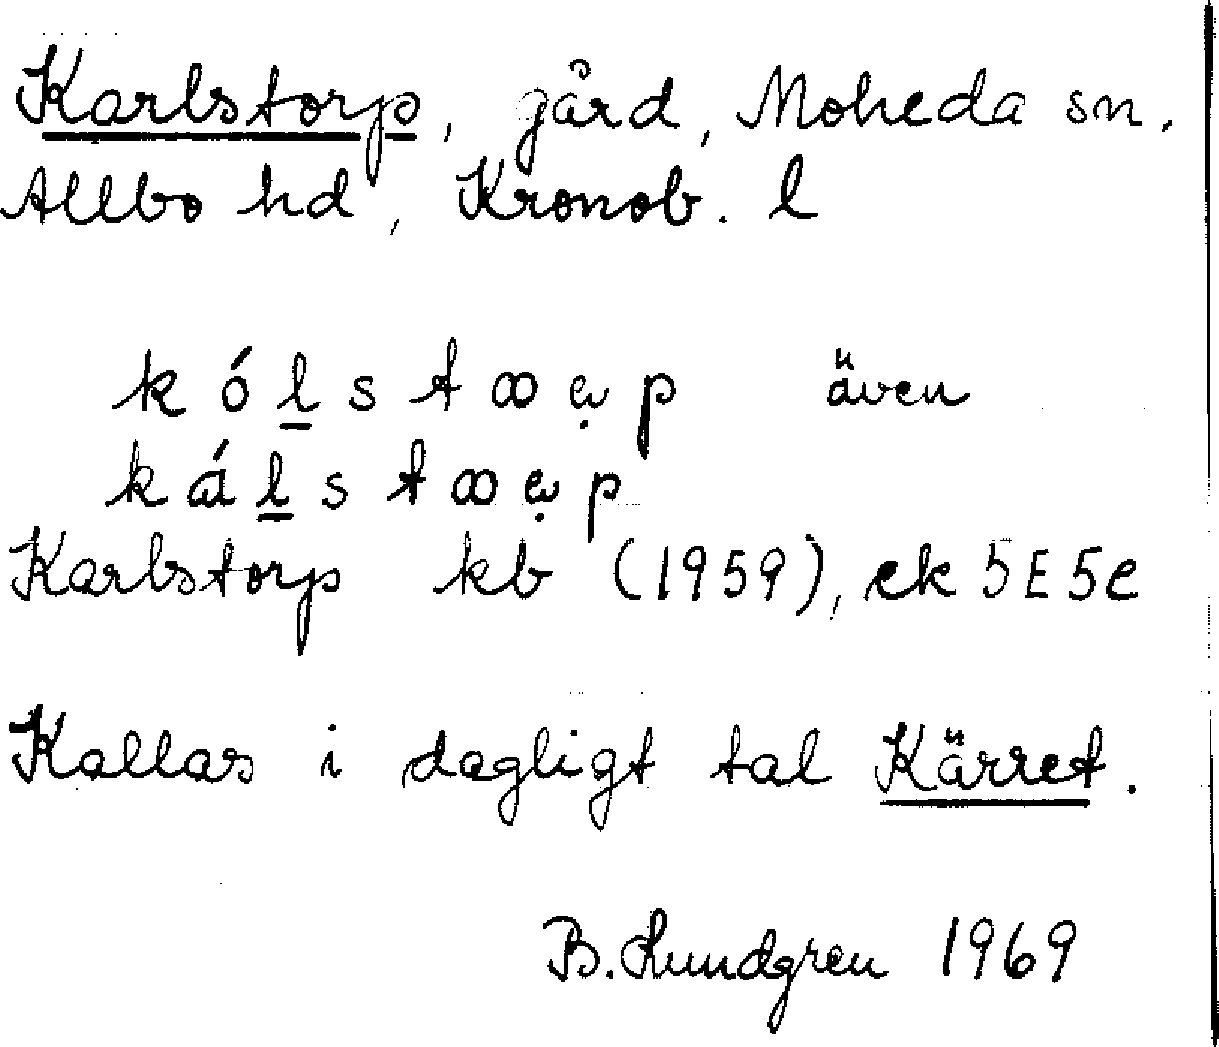 Karlstorp, gård, Moheda sn.
Allbo hd, Kronob. l
k ó l̲ s t ꝏ ə̣ p även
k á l̲ s t ꝏ ə̣ p
Karlstorp kb (1959), ek 5E5e
Kallas i dagligt tal Kärret.
B. Lundgren 1969